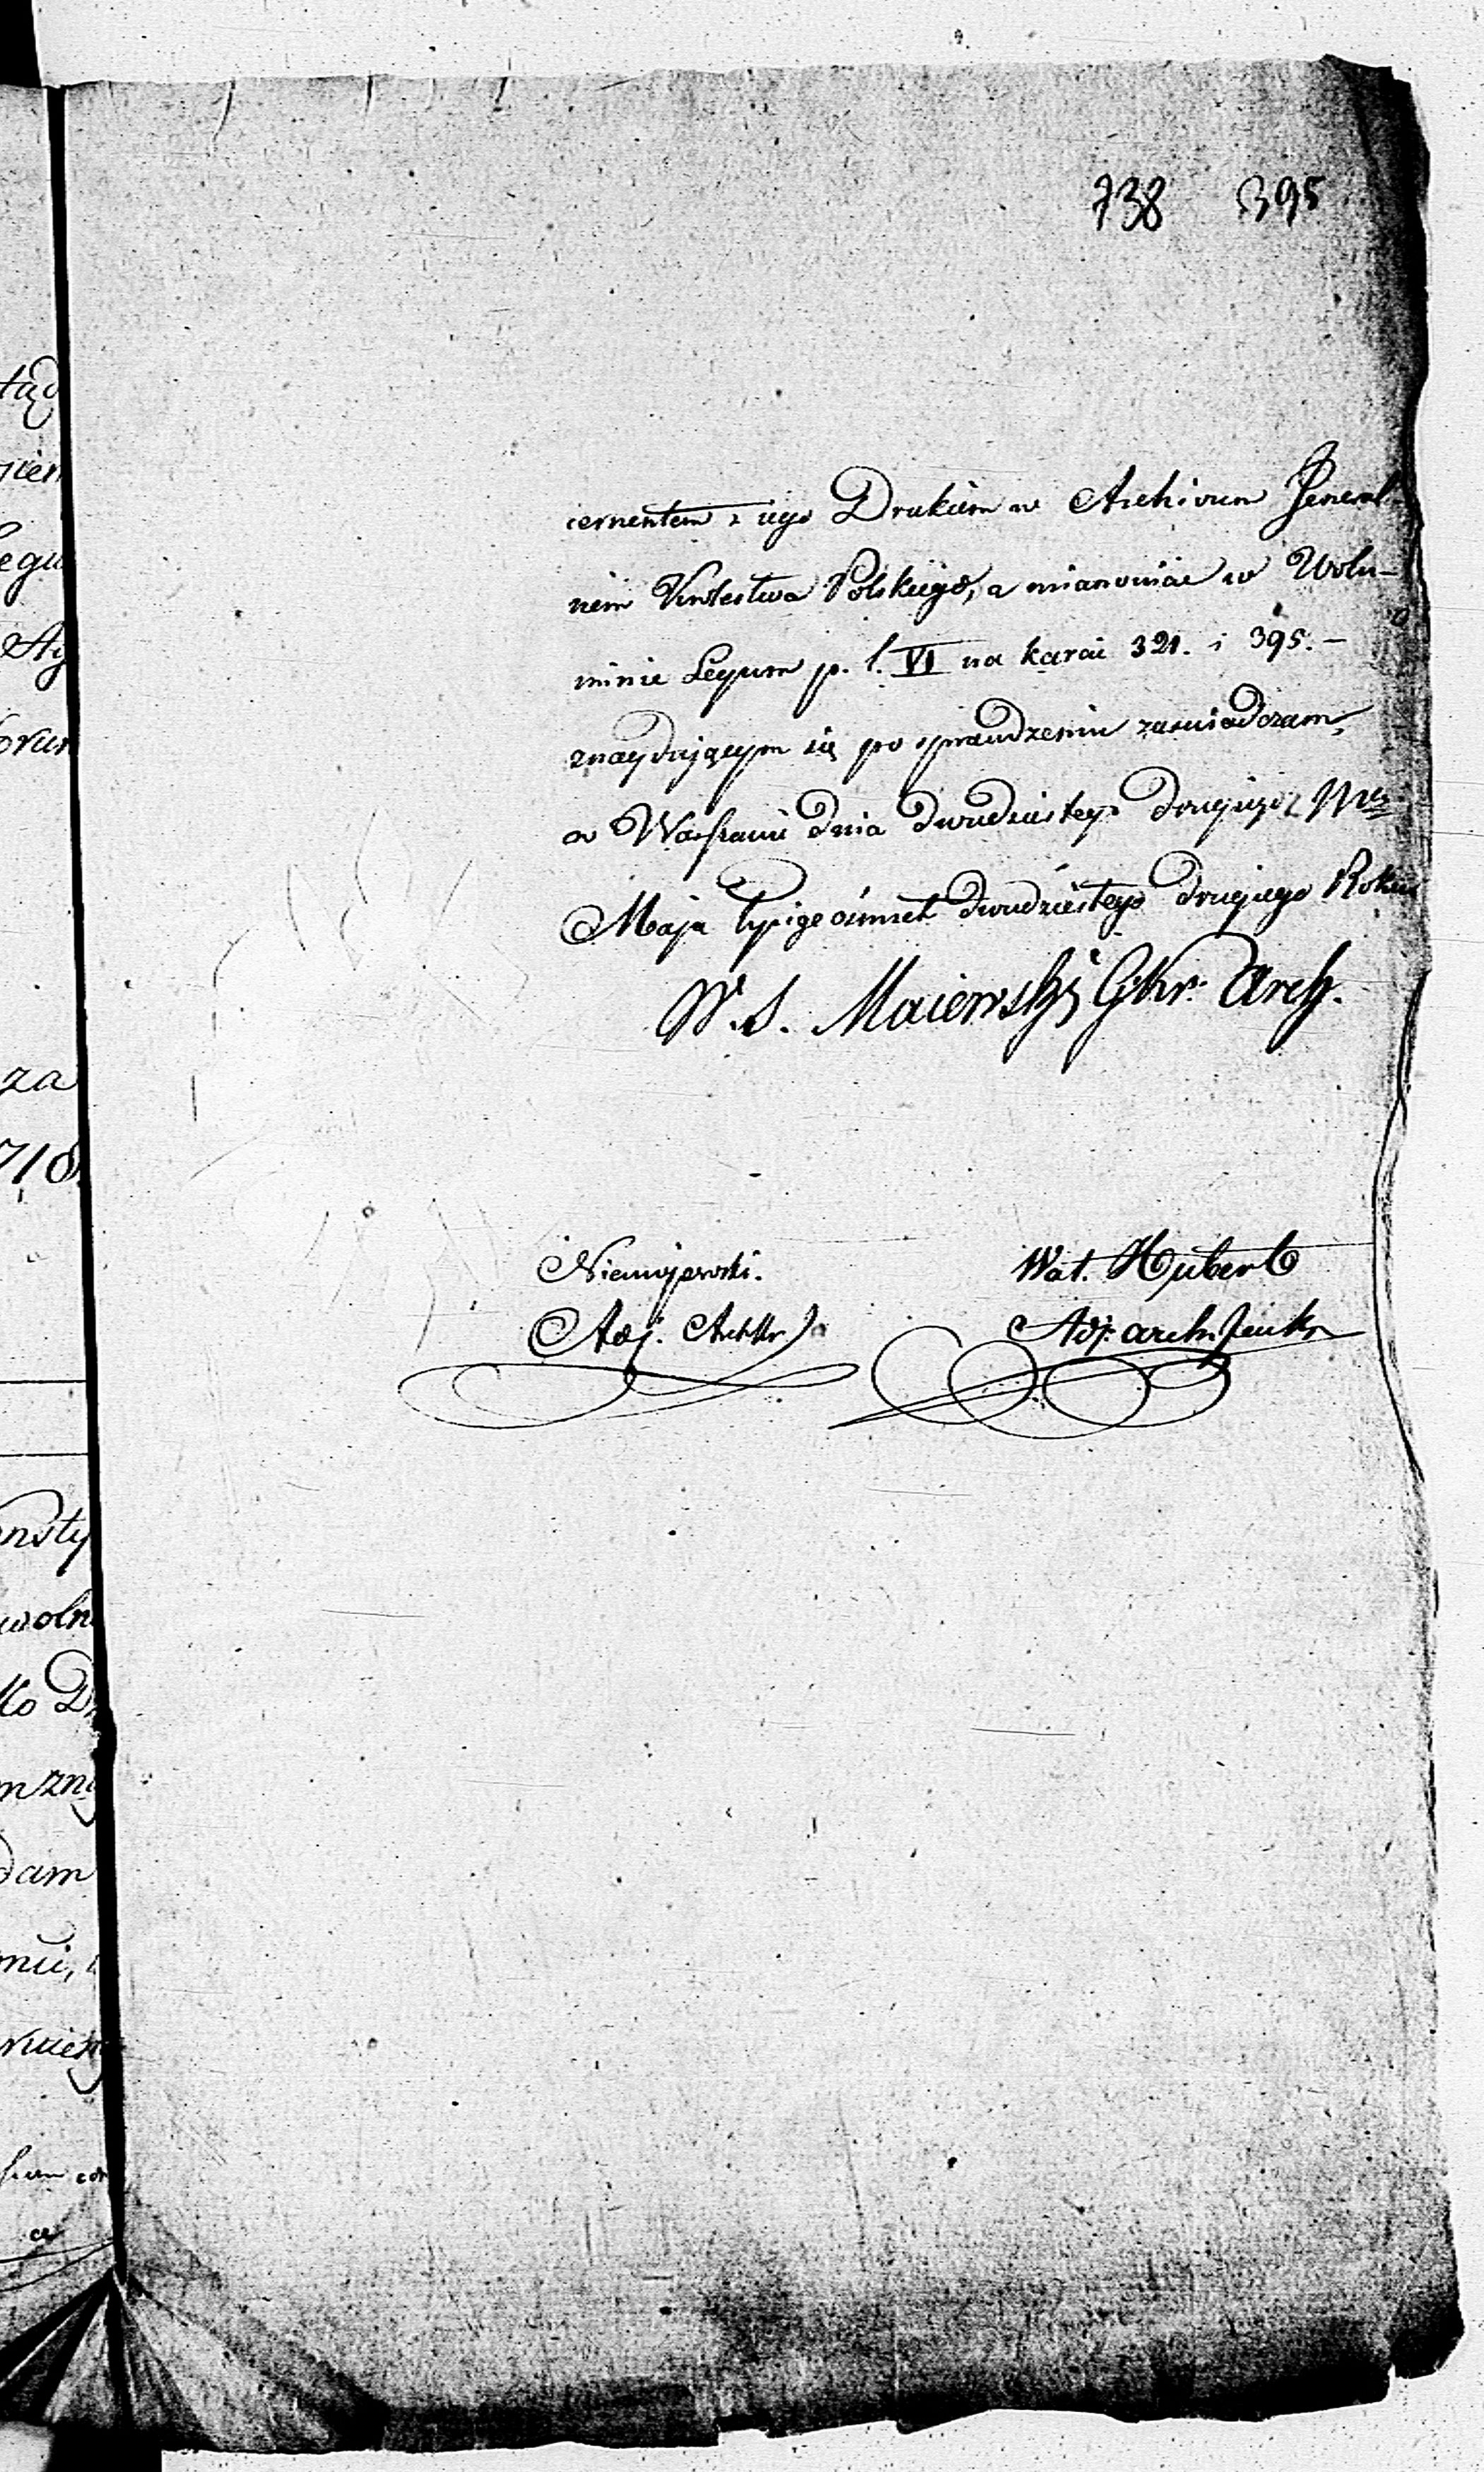 738 395
cernentem z iego Drukiem w Archivum General
nem Krolestwa Polskiego, a mianowicie w Wolu-
minie Legum p. l. VI na karcie 321. i 395.-
znaydującym się po sprawdzeniu zaswiadczam,
w Warszawie dnia dwudziestego drugiego Mca
Maja tysiąc ośmset dwudziestego drugiego Roku
W. S. Maiewski G. Kr. Arch.
Niemojewski. Wal. Hubert
Adj. Arch. Kr. Adj. arch.
tąd
egu
za
718
nsty
woln
ło D
m zn
dam
mu,